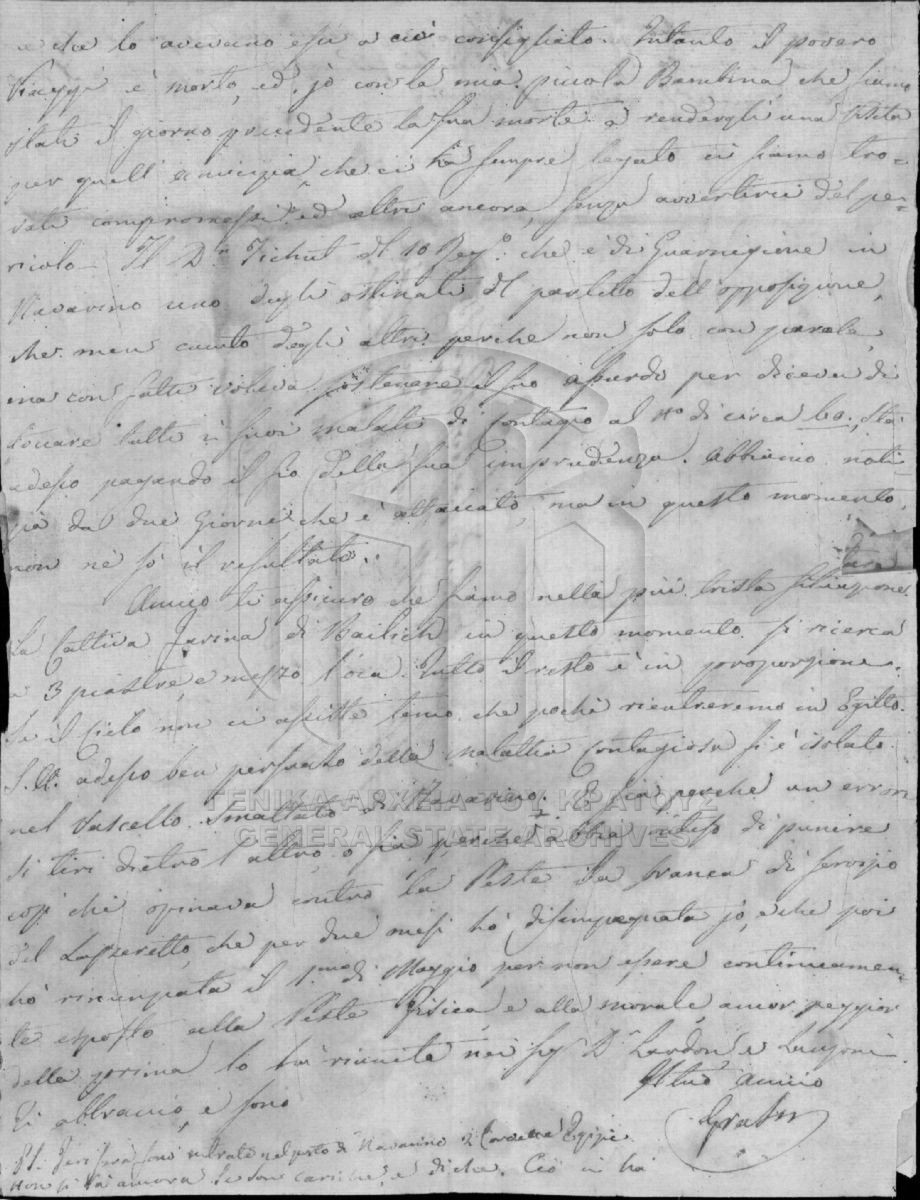 e che lo avevano essi a ciò consigliato. Intanto il povero
Viaggi è morto, ed jo con la mia piccola Bambina, che siamo
stati il giorno precedente la sua morte a rendergli una visita
per quell'amicizia, che ci hà sempre legato ci siamo tro=
vati compromessi, ed altri ancora, senza avvertirci del pe=
ricolo. Il Dr. del 10 Regº. che è di Guarnigione in
Navarino uno degli ostinati del partito dell'opposizione,
che men cauto degli altri perche non solo con parole,
ma con fatti voleva sostenere il suo assurdo per diceva di
toccare tutti i suoi malati di Contagio al nº di circa 60, stà
adesso pagando il fio della sua imprudenza. Abbiamo noti
zia da due Giorni che è attaccato, ma in questo momento
non ne sò il resultato.
Amico ti assicuro che siamo nella più trista situazione.
La Cattiva farina di in questo momento si ricerca
a 3 piastre, e mezzo l'oca. Tutto il resto è in proporzione.
Se il Cielo non ci assiste temo che pochi rientreremo in Egitto.
S.A. adesso ben persuaso della malattia Contagiosa si è isolato
nel Vascello smaltato di Navarino. O sia perche un errore
si tiri dietro l'altro, o sia perche abbia inteso di punire
cosi chi opinava contro la Peste la branca di servizio
del Lazzeretto, che per due mesi hò disimpegnata jo, e che poi
hò rinunziata il 1.mo di Maggio per non essere continuamen=
te esposto alla Peste fisica, e alla morale, ancor peggior
della prima lo hà riunita nei Sig.i Dri. Lardoni, e Luczoni
Ti abbraccio, e sono
Il tuo Amico
Grassi
PS. Jeri sera sono entrate nel porto di Navarino 21 Corvette Egizie
non si sà ancora se son cariche, e di che. Ciò in hà
ΓΕΝΙΚΑ ΑΡΧΕΙΑ ΤΟΥ ΚΡΑΤΟΥΣ
GENERAL STATE ARCHIVES